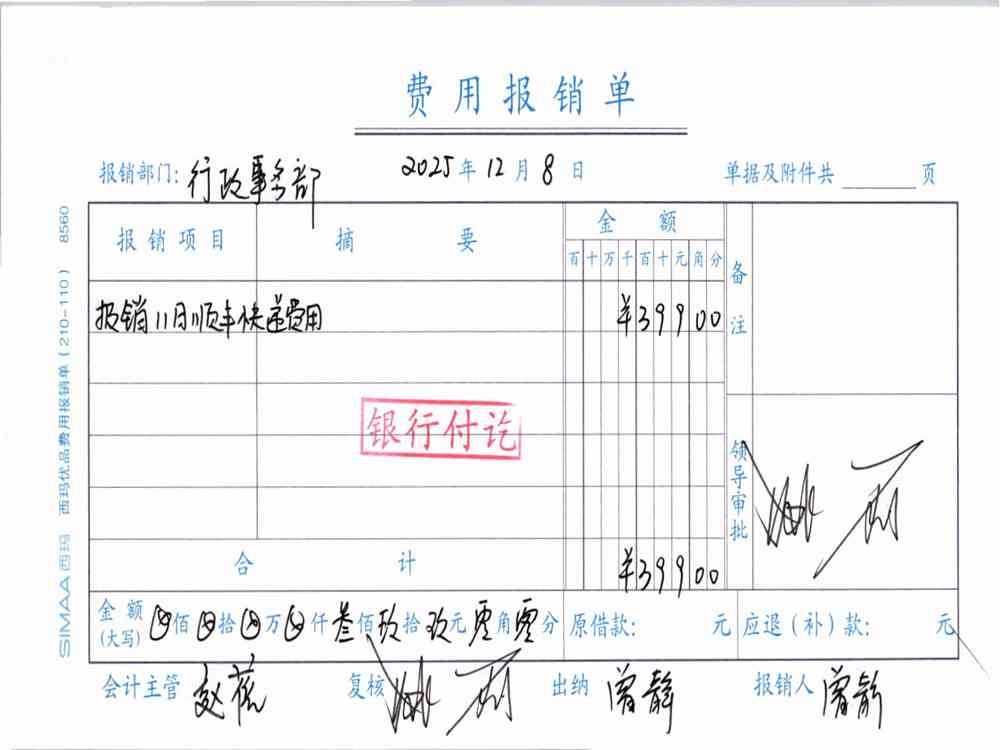 费用报销单
报销部门: 行政事务部 2025年12月8日 单据及附件共 页
报销项目 摘要 金额 备注
百十万千百十元角分
报销11月顺丰快递费用 ¥39900
银行付讫
领导审批
合计 ¥39900
金额(大写) 佰 拾 万 仟叁佰玖拾玖元零角零分 原借款: 元 应退(补)款: 元
会计主管 复核 出纳 曾静 报销人 曾静
SIMAA西玛 西玛优品费用报销单(210-110) 8560